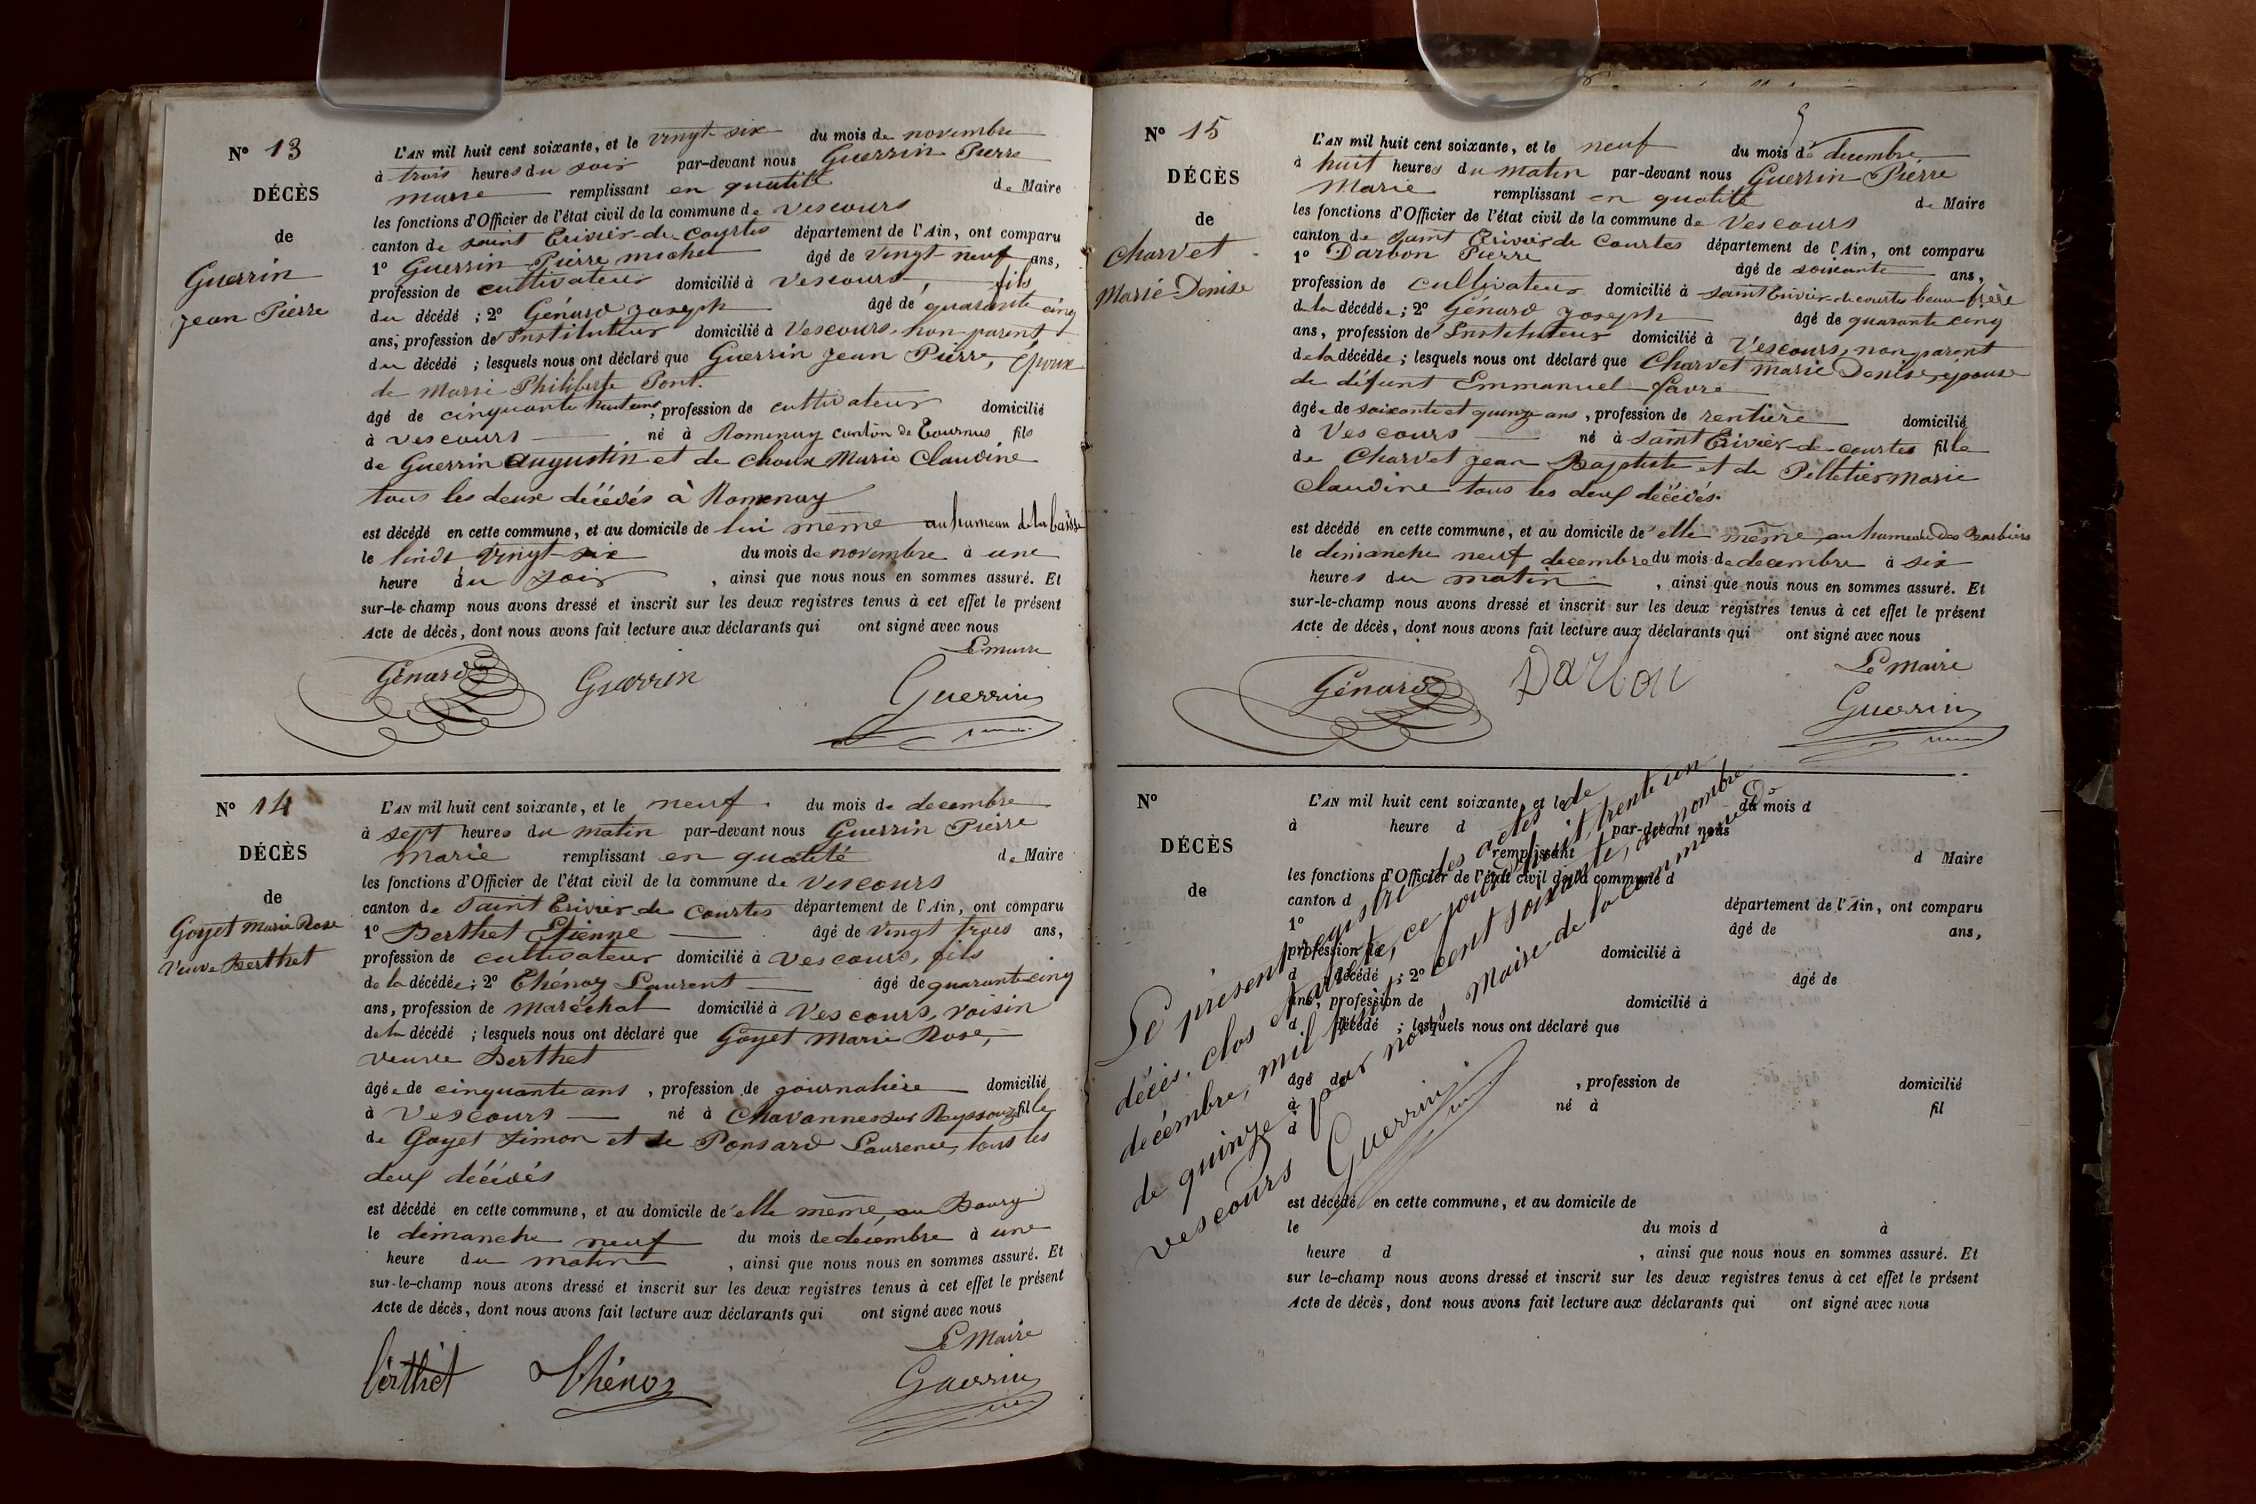 N° 13
DÉCÈS
de
Guerrin
Jean Pierre
L'AN mil huit cent soixante, et le vingt six du mois de novembre
à trois heures du soir par-devant nous Guerrin Pierre
marie remplissant en qualité de Maire
les fonctions d'Officier de l'état civil de la commune de Vescours
canton de saint Trivier-de-Courtes département de l'Ain, ont comparu
1° Guerrin Pierre michel âgé de vingt neuf ans,
profession de cultivateur domicilié à Vescours, fils
du décédé ; 2° Génard Joseph âgé de quarante cinq
ans, profession de Instituteur domicilié à Vescours, non parent
du décédé ; lesquels nous ont déclaré que Guerrin Jean Pierre, époux
de Marie Philiberte Pont.
âgé de cinquante huit ans, profession de cultivateur domicilié
à Vescours né à Romenay canton de Tournus fils
de Guerrin Augustin et de Choux Marie Claudine
tous les deux décédés à Romenay
est décédé en cette commune, et au domicile de lui même au hameau de la baisse
le lundi vingt six du mois de novembre à une
heure du soir , ainsi que nous nous en sommes assuré. Et
sur-le-champ nous avons dressé et inscrit sur les deux registres tenus à cet effet le présent
Acte de décès, dont nous avons fait lecture aux déclarants qui ont signé avec nous
Le maire
Génard Guerrin Guerrin
N° 14
DÉCÈS
de
Goyet Marie Rose
Veuve Berthet
L'AN mil huit cent soixante, et le neuf du mois de decembre
à sept heures du matin par-devant nous Guerrin Pierre
marie remplissant en qualité de Maire
les fonctions d'Officier de l'état civil de la commune de Vescours
canton de Saint Trivier de Courtes département de l'Ain, ont comparu
1° Berthet Etienne âgé de vingt trois ans,
profession de cultivateur domicilié à Vescours, fils
de la décédée ; 2° Thénoz Laurent âgé de quarante cinq
ans, profession de maréchal domicilié à Vescours, voisin
de la décédé ; lesquels nous ont déclaré que Goyet Marie Rose,
veuve Berthet
âgée de cinquante ans , profession de journalière domicilié
à Vescours né à Chavannes sur Reyssouze fille
de Goyet Simon et de Ponsard Laurence, tous les
deux décédés
est décédé en cette commune, et au domicile de elle même, au Bourg
le dimanche neuf du mois de decembre à une
heure du matin , ainsi que nous nous en sommes assuré. Et
sur-le-champ nous avons dressé et inscrit sur les deux registres tenus à cet effet le présent
Acte de décès, dont nous avons fait lecture aux déclarants qui ont signé avec nous
Le Maire
Berthet Thénoz Guerrin
N° 15
DÉCÈS
de
Charvet
Marie Denise
L'AN mil huit cent soixante, et le neuf du mois de decembre
à huit heures du matin par-devant nous Guerrin Pierre
Marie remplissant en qualité de Maire
les fonctions d'Officier de l'état civil de la commune de Vescours
canton de Saint Trivier de Courtes département de l'Ain, ont comparu
1° Darbon Pierre âgé de soixante ans,
profession de cultivateur domicilié à saint Trivier de courtes beau-frère
de la décédée ; 2° Génard Joseph âgé de quarante cinq
ans, profession de Instituteur domicilié à Vescours, non parent
de la décédée ; lesquels nous ont déclaré que Charvet marie Denise, épouse
de défunt Emmanuel favre
âgée de soixante et quinze ans , profession de rentière domicilié
à Vescours né à saint Trivier-de-courtes fille
de Charvet Jean Baptiste et de Pelletier Marie
Claudine tous les deux décédés.
est décédé en cette commune, et au domicile de elle même, au hameau des Barbiers
le dimanche neuf decembre du mois de decembre à six
heures du matin , ainsi que nous nous en sommes assuré. Et
sur-le-champ nous avons dressé et inscrit sur les deux registres tenus à cet effet le présent
Acte de décès, dont nous avons fait lecture aux déclarants qui ont signé avec nous
Le Maire
Génard Darbon Guerrin
N°
DÉCÈS
de
L'AN mil huit cent soixante, et le du mois d
à heure d par-devant nous
remplissant d Maire
les fonctions d'Officier de l'état civil de la commune d
canton d département de l'Ain, ont comparu
1° âgé de ans,
profession de domicilié à
d décédé ; 2° âgé de
ans, profession de domicilié à
d décédé ; lesquels nous ont déclaré que
âgé de , profession de domicilié
à né à fil
d
est décédé en cette commune, et au domicile de
le du mois d à
heure d , ainsi que nous nous en sommes assuré. Et
sur le-champ nous avons dressé et inscrit sur les deux registres tenus à cet effet le présent
Acte de décès, dont nous avons fait lecture aux déclarants qui ont signé avec nous
Le présent registre des actes de
décès, clos et arrêté, ce jourd'huit, trente un
décembre, mil huit cent soixante, au nombre
de quinze par nous Maire de la commune de
vescours Guerrin